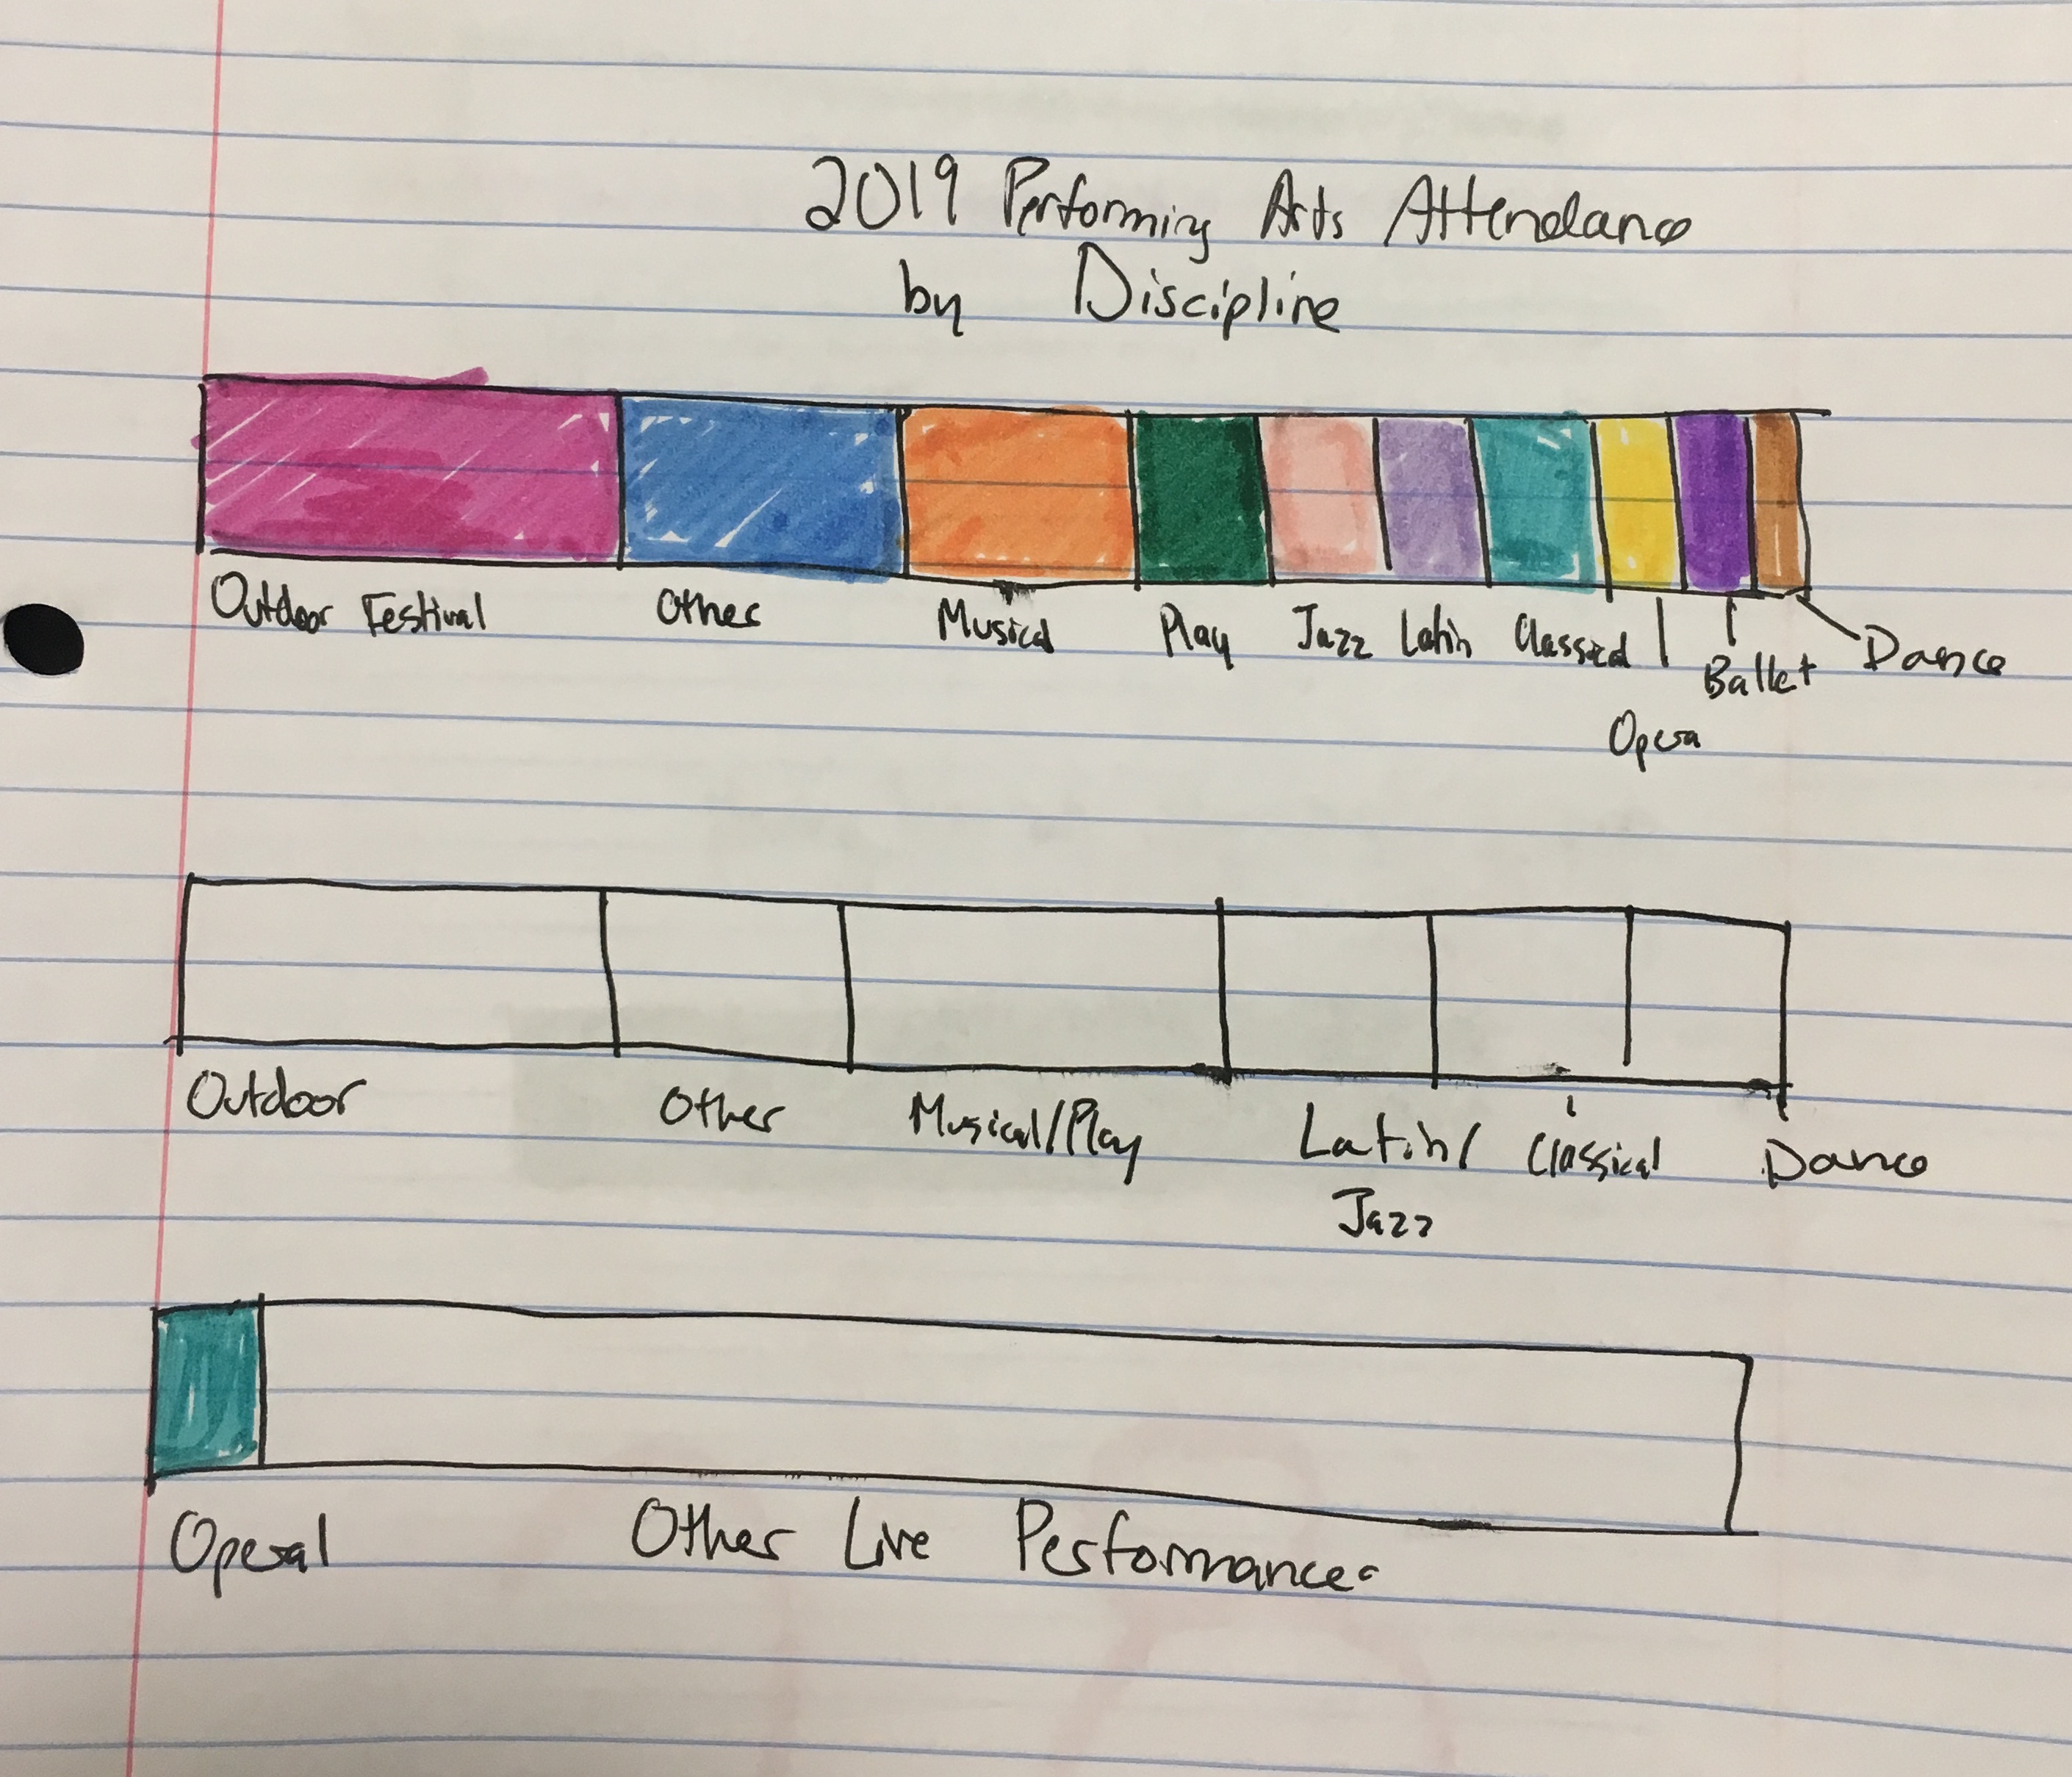 2019 Performing Arts Attendance
by Discipline
Outdoor Festival Other Musical Play Jazz Latin Classical Ballet Dance
Opera
Outdoor Other Musical/Play Latin/ Classical Dance
Jazz
Operal Other Live Performances